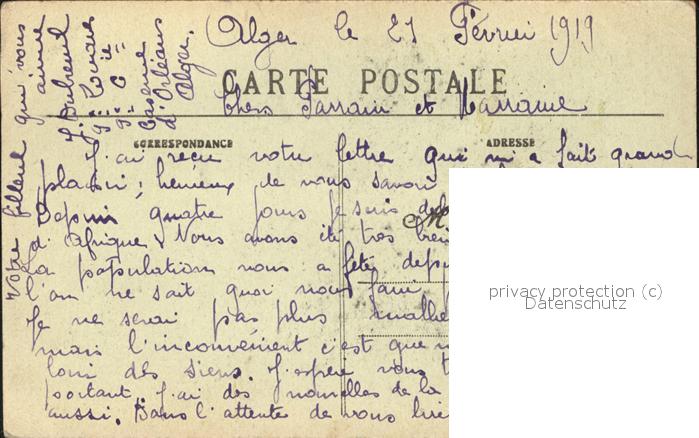 Alger le 21 Février 1919
CARTE POSTALE
Chers Parrain et Marraine
CORRESPONDANCE
ADRESSE
J'ai reçu votre lettre qui m'a fait grand
plaisir; heureux de vous savoir
Depuis quatre jours je suis
d'Afrique. Nous avons été très
La population nous a fêté
l'on ne sait quoi nous
Je ne serai pas plus
mais l'inconvénient c'est que
loin des siens. J'espère vous
portant. J'ai des nouvelles de la
aussi. Dans l'attente de vous
Votre filleul qui vous
aime
J. Dubreuil
9e Zouaves
9e Cie
Caserne
d'Orléans
Alger.
privacy protection (c)
Datenschutz